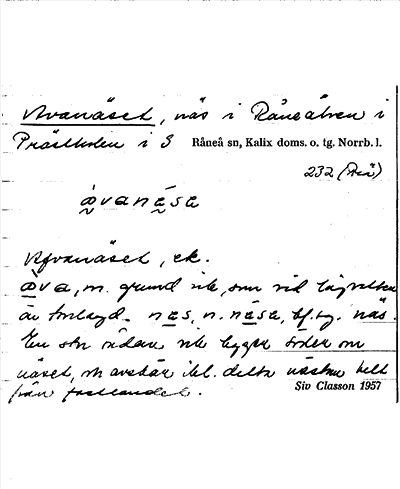 Avanäset, näs i Råneälven i
Prästholm i S Råneå sn, Kalix doms. o. tg. Norrb. l.
232
avanę́sa
Avanäset, ek.
ava, m. grund vik, som vid lågvatten
är torrlagd. nęs, n. nę́sa, bf. sg. näs.
En stor sådan vik ligger söder om
näset, o. avskär vid detta nästan helt
från fastlandet.
Siv Classon 1957